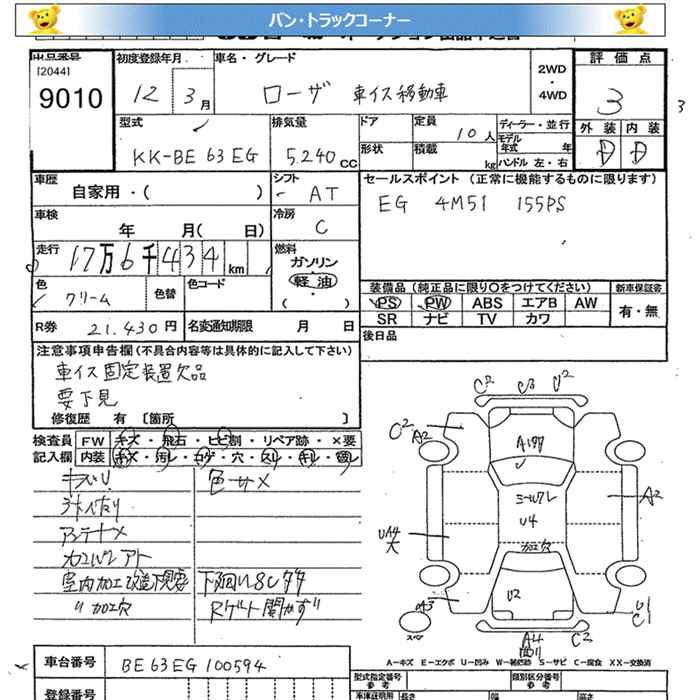 バン・トラックコーナー
出品番号
[2044]
9010
初度登録年月
12 3月
車名・グレード
ローザ 車イス移動車
2WD
・
4WD
評価点
3
3
外装 内装
D D
型式
KK-BE 63 EG
排気量
5.240 CC
ドア
形状
定員
10人
積載
kg
ディーラー・並行
モデル年式 年
ハンドル 左・右
車歴
自家用・( )
シフト
AT
セールスポイント (正常に機能するものに限ります)
EG 4M51 155PS
車検
年 月( 日)
冷房
C
走行
17万6千434km
燃料
ガソリン
軽油
( )
色
クリーム
色替
色コード
装備品(純正品に限り○をつけてください)
PS PW ABS エアB AW
SR ナビ TV カワ
新車保証書
有・無
R券 21.430円
名変通知期限 月 日
後日品
注意事項申告欄(不具合内容等は具体的に記入して下さい)
車イス固定装置欠品
要下見
修復歴 有 〔箇所 〕
検査員 FW キズ・飛石・ヒビ割・リペア跡・×要
記入欄 内装 キズ・汚レ・コゲ・穴・スレ・キレ・
色サメ
アンテナ×
室内加工改造下見要
〃加工穴
下回りSC多々
Rゲート開かず
C2 C3 U2
C2
A2
A2
ミールワレ
U4
加工穴
大
U2
A3
U1
C1
A4
C2
車台番号
BE63EG100594
登録番号
A-キズ E-エクボ U-凹み W-補修跡 S-サビ C-腐食 XX-交換済
型式指定番号
参考
類別区分番号
参考
長さ 幅 高さ